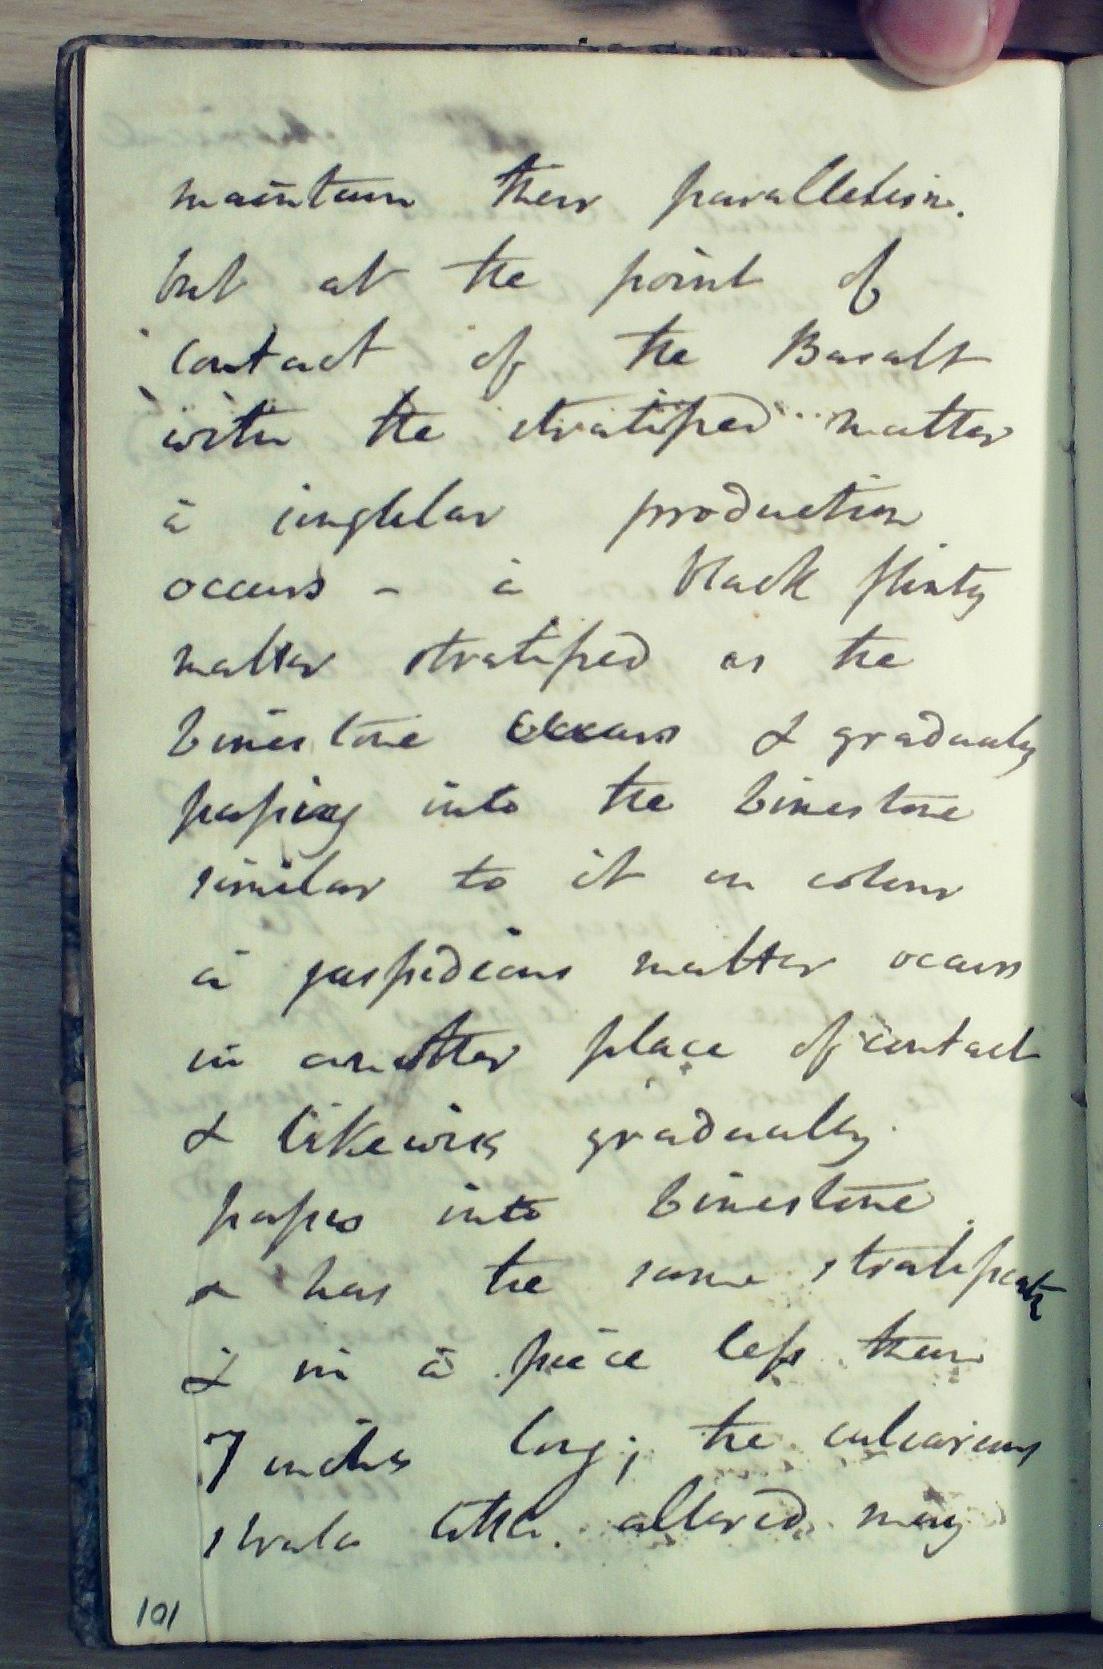 maintain their parallelism.
but at the point of
contact of the Basalt
with the stratified matter
a singular production
occurs - a black flinty
matter stratified as the
Limestone occurs & gradually
passing into the Limestone
similar to it in colour
a jaspideous matter occurs
in another place of contact
& likewise gradually
passes into Limestone
& has the same stratificatn
& in a piece less than
7 inches long; the calcareous
strata little altered may
101